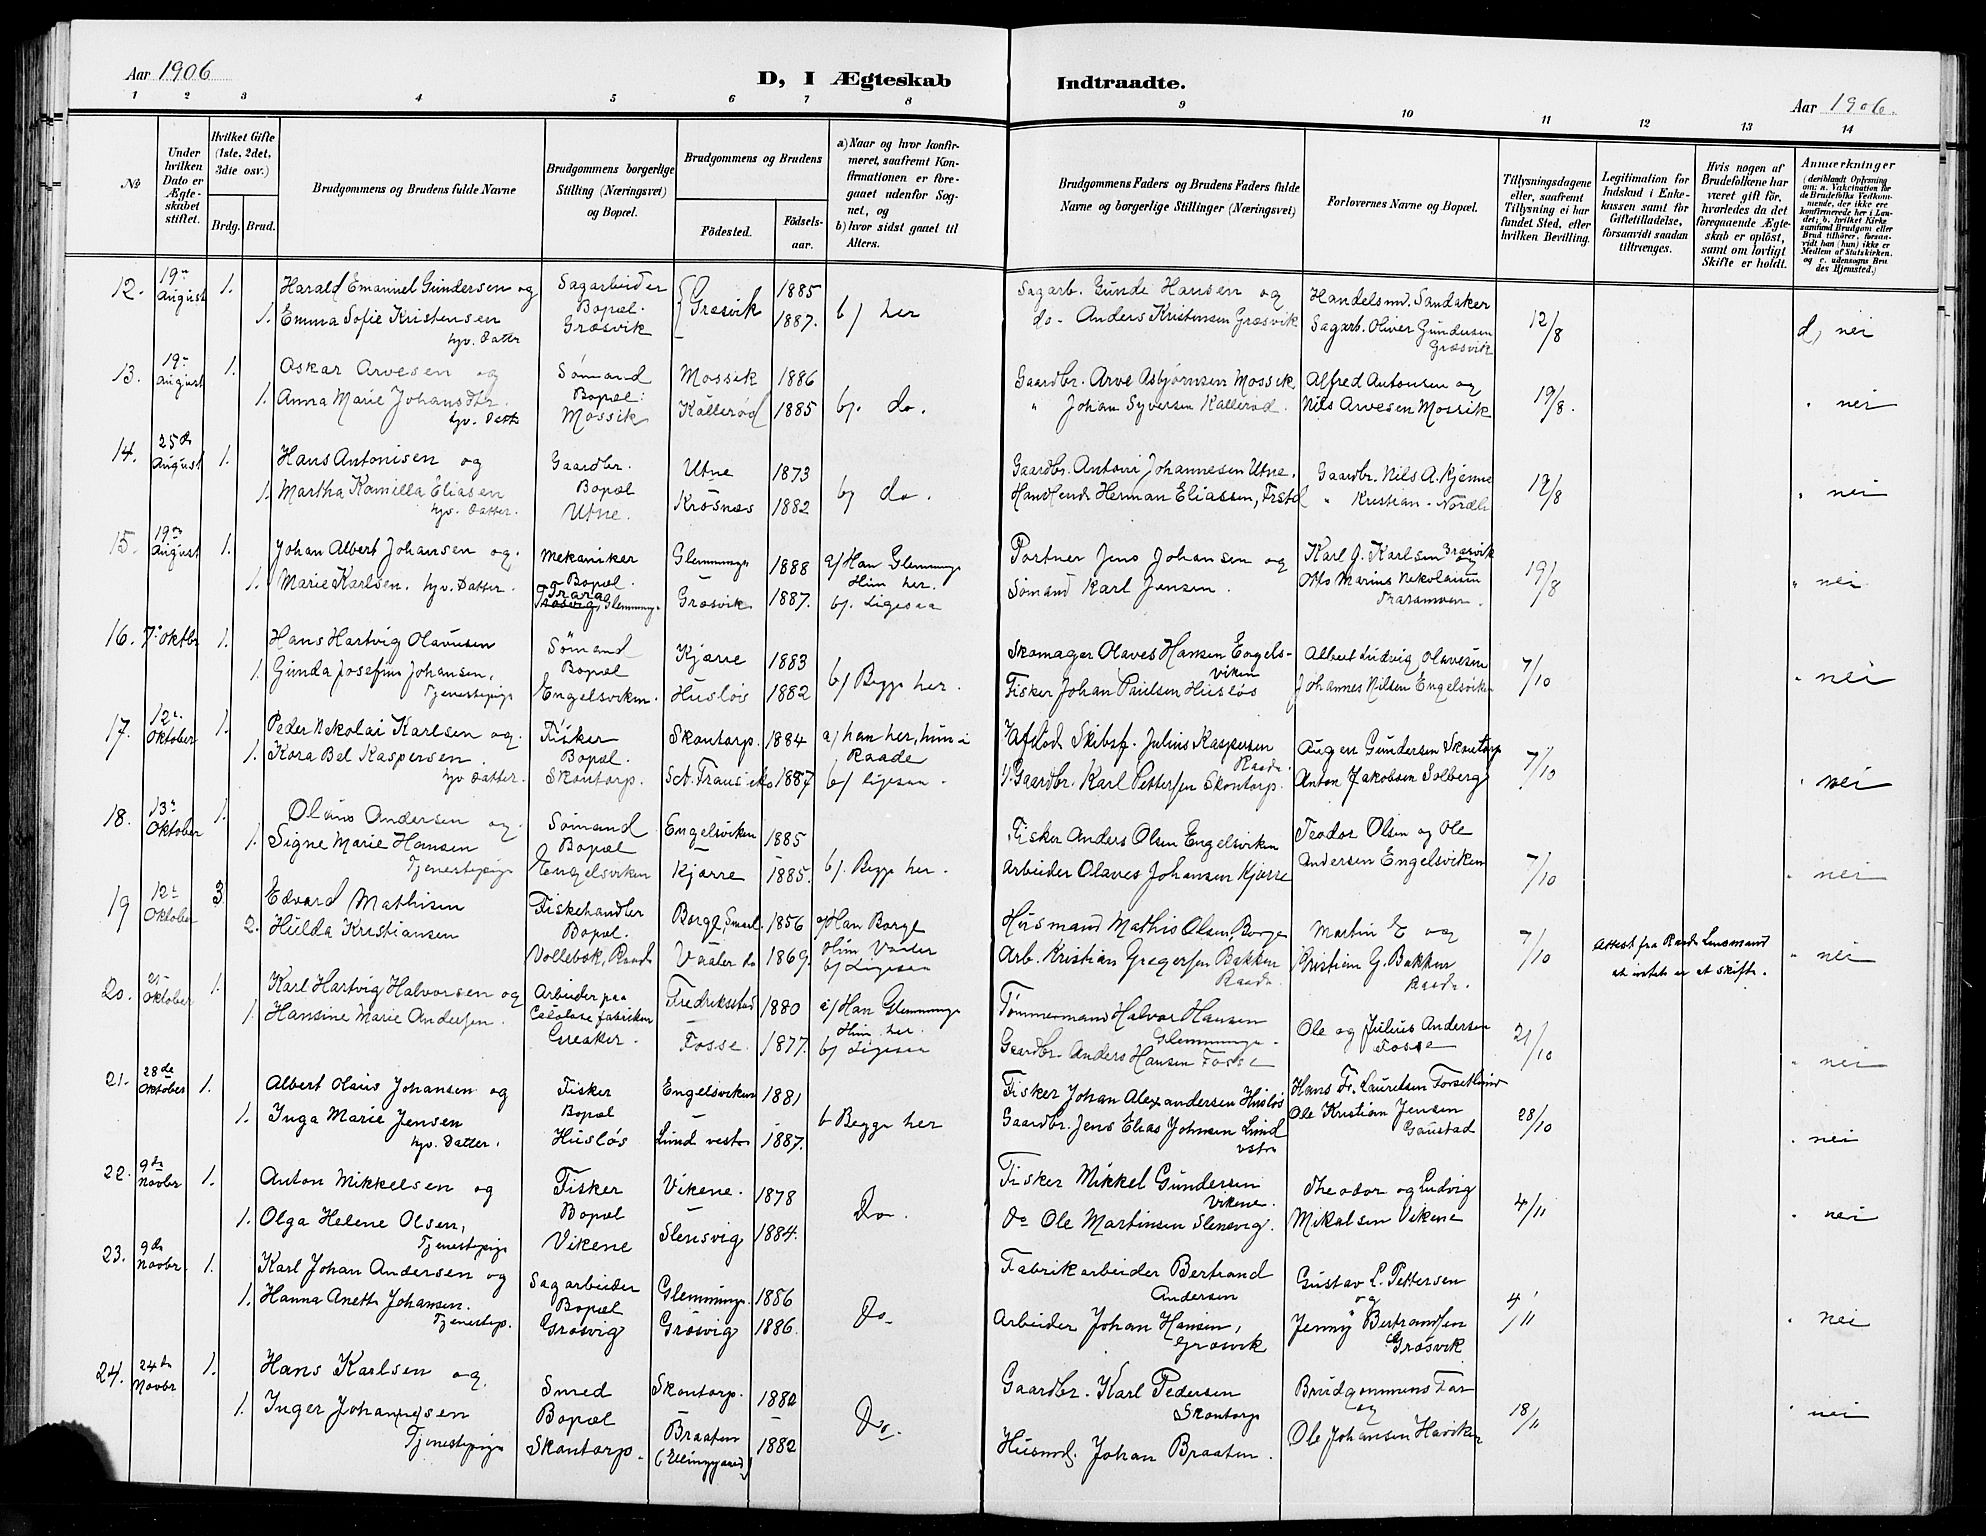 Aar 1906
D, I Ægteskab Indtraadte.
Aar 1906.
1 2 3 4 5 6 7 8 9 10 11 12 13 14
№
Under hvilken Dato er Ægteskabet stiftet.
Hvilket Gifte (1ste, 2det, 3die osv.)
Brdg. Brud.
Brudgommens og Brudens fulde Navne
Brudgommens borgerlige Stilling (Næringsvei) og Bopæl.
Brudgommens og Brudens
Födested.
Födselsaar.
a) Naar og hvor konfirmeret, saafremt Konfirmationen er foregaaet udenfor Sognet, og
b) hvor sidst gaaet til Alters.
Brudgommens Faders og Brudens Faders fulde Navne og borgerlige Stillinger (Næringsvei)
Forlovernes Navne og Bopæl.
Tillysningsdagene eller, saafremt Tillysning ei har fundet Sted, efter hvilken Bevilling.
Legitimation for Indskud i Enkekassen samt for Giftetilladelse, forsaavidt saadan tiltrænges.
Hvis nogen af Brudefolkene har været gift för, hvorledes da det foregaaende Ægteskab er oplöst, samt om lovligt Skifte er holdt.
Anmærkninger
(deriblandt Oplysning om: a. Vakcination for de Brudefolks Vedkommende, der ikke ere konfirmerede her i Landet; b. hvilket Kirkesamfund Brudgom eller Brud tilhörer, forsaavidt han (hun) ikke er Medlem af Statskirken, og c. udensogns Brudes Hjemsted.)
12. 19de August 1. Harald Emanuel Gundersen og Sagarbeider Græsvik 1885 b) her Sagarb. Gunde Hansen og Handelsm. Sandaker 12/8 d) nei
1. Emma Sofie Kristensen Bopæl. 1887. do - Anders Kristensen Græsvik Sagarb. Oliver Gundersen
hjv. Datter Græsvik Græsvik
13. 19de August 1. Oskar Arvesen og Sømand Mossik 1886 b). do. Gaardbr. Arve Asbjørnsen Mossik Alfred Antonsen og 19/8. " nei
1. Anna Marie Johansdtr. Bopæl: Kallerød 1885 " Johan Syversen Kallerød. Nils Arvesen Mossik
hjv. Datter Mossik
14. 25de August 1. Hans Antonisen og Gaardbr. Utne 1873 b) do. Gaardbr. Antoni Johannesen Utne. Gaardbr. Nils A. Kjenne 19/8 " nei
1. Martha Kamilla Eliasen Bopæl Krosnæs 1882 Handlende Herman Eliassen, " Kristian - Nordli
hjv. Datter. Utne.
15. 19de August 1. Johan Albert Johansen og. Mekaniker Glemminge 1888 a) Han Glemminge Portner Jens Johansen og Karl J. Karlsen Græsvik og 19/8 " nei
1. Marie Karlsen. hjv. Datter. Bopæl. Græsvik 1887. Hun her. Sømand Karl Jensen. Otto Marius Nikolaisen
Trara Glemminge b). Ligesaa Traramoen.
16. 7de Oktbr 1. Hans Hartvig Olaussen Sømand Kjærre 1883 b) Begge her. Skomager Olaves Hansen Engelsviken Albert Ludvig Olavesen 7/10 " nei
1. Gunda Josefine Johansen, Bopæl Husløs 1882 Fisker Johan Paulsen Husløs Johannes Nilsen Engelsviken
Tjenestepige Engelsviken.
17. 12te Oktober 1. Peder Nikolai Karlsen og. Fisker Skontorp. 1884 a) han her, hun i Raade Afdød Skibsf. Julius Kaspersen Raade. Augen Gundersen Skontorp 7/10 " nei
1. Kora Bel Kaspersen. Bopæl. 1887 b) ligesaa. Gaardbr. Karl Pettersen Skontorp. Anton Jakobsen Solberg
hjv Datter. Skontorp.
18. 13de Oktober 1. Olaus Andersen og. Sømand Engelsviken 1885 b). Begge her. Fisker Anders Olsen Engelsviken Teodor Olsen og Ole 7/10 " nei
1. Signe Marie Hansen Bopæl Kjærre 1885. Arbeider Olaves Johansen Kjærre Andersen Engelsviken
Tjenestepige Engelsviken
19 12te Oktober 3. Edvard Mathisen Fiskehandler Borge, Smaal. 1856 a) Han Borge Husmand Mathis Olsen, Borge Martin E og 7/10 Attest fra Raade Lensmand " nei
2. Hulda Kristiansen Bopæl. Vaaler do 1869. Hun Vaaler Arb. Kristian Gregersen Bakken Kristian G. Bakken at intet er at skifte.
Vollebæk, Raade b) Ligesaa Raade. Raade.
20. Oktober 1. Karl Hartvig Halvorsen og Arbeider paa Fredriksstad 1880 a) Han Glemminge Tømmermand Halvor Hansen Ole og Julius Andersen 21/10 " nei
1. Hansine Marie Andersen. Celolose fabriken Fosse. 1877. Hun her. Glemminge. Fosse
Greaker. b) Ligesaa Gaardbr. Anders Hansen Fosse
21. 28de Oktober 1. Albert Olaus Johansen og Fisker Engelsviken 1881 b Begge her Fisker Johan Alexandersen Husløs Hans Fr. Lauretsen Forsetlund 28/10 " nei
1. Inga Marie Jensen Bopæl Lund vestre 1887. Gaardbr. Jens Elias Johnsen Lund vstre Ole Kristian Jensen
hjv. Datter. Husløs Gaustad
22. 9de Novbr 1. Anton Mikkelsen og Fisker Vikene. 1878 Do. Fisker Mikkel Gundersen Vikene. Theodor og Ludvig 4/11 " nei
1. Olga Helene Olsen, Bopæl Slensvig 1884. Do Ole Martinsen Slensvig. Mikalsen Vikene
Tjenestepige Vikene
23. 9de Novbr. 1. Karl Johan Andersen og Sagarbeider Glemminge. 1886 Do. Fabrikarbeider Bertrand Andersen Gustav L. Pettersen og 4/11 " nei
1. Hanna Anette Johansen. Bopæl Græsvig 1886. Arbeider Johan Hansen, Græsvik Jenny Bertrandsen
Tjenestep. Græsvig Græsvik
24. 24de Novbr 1. Hans Karlsen og. Smed Skontorp. 1882 Do. Gaardbr. Karl Pedersen Skontorp Brudgommens Far og 18/11 " nei
1. Inger Johannesen Bopæl Braaten 1882 Husmd. Johan Braaten. Ole Johansen Haviken
Tjenestepige Skontorp.